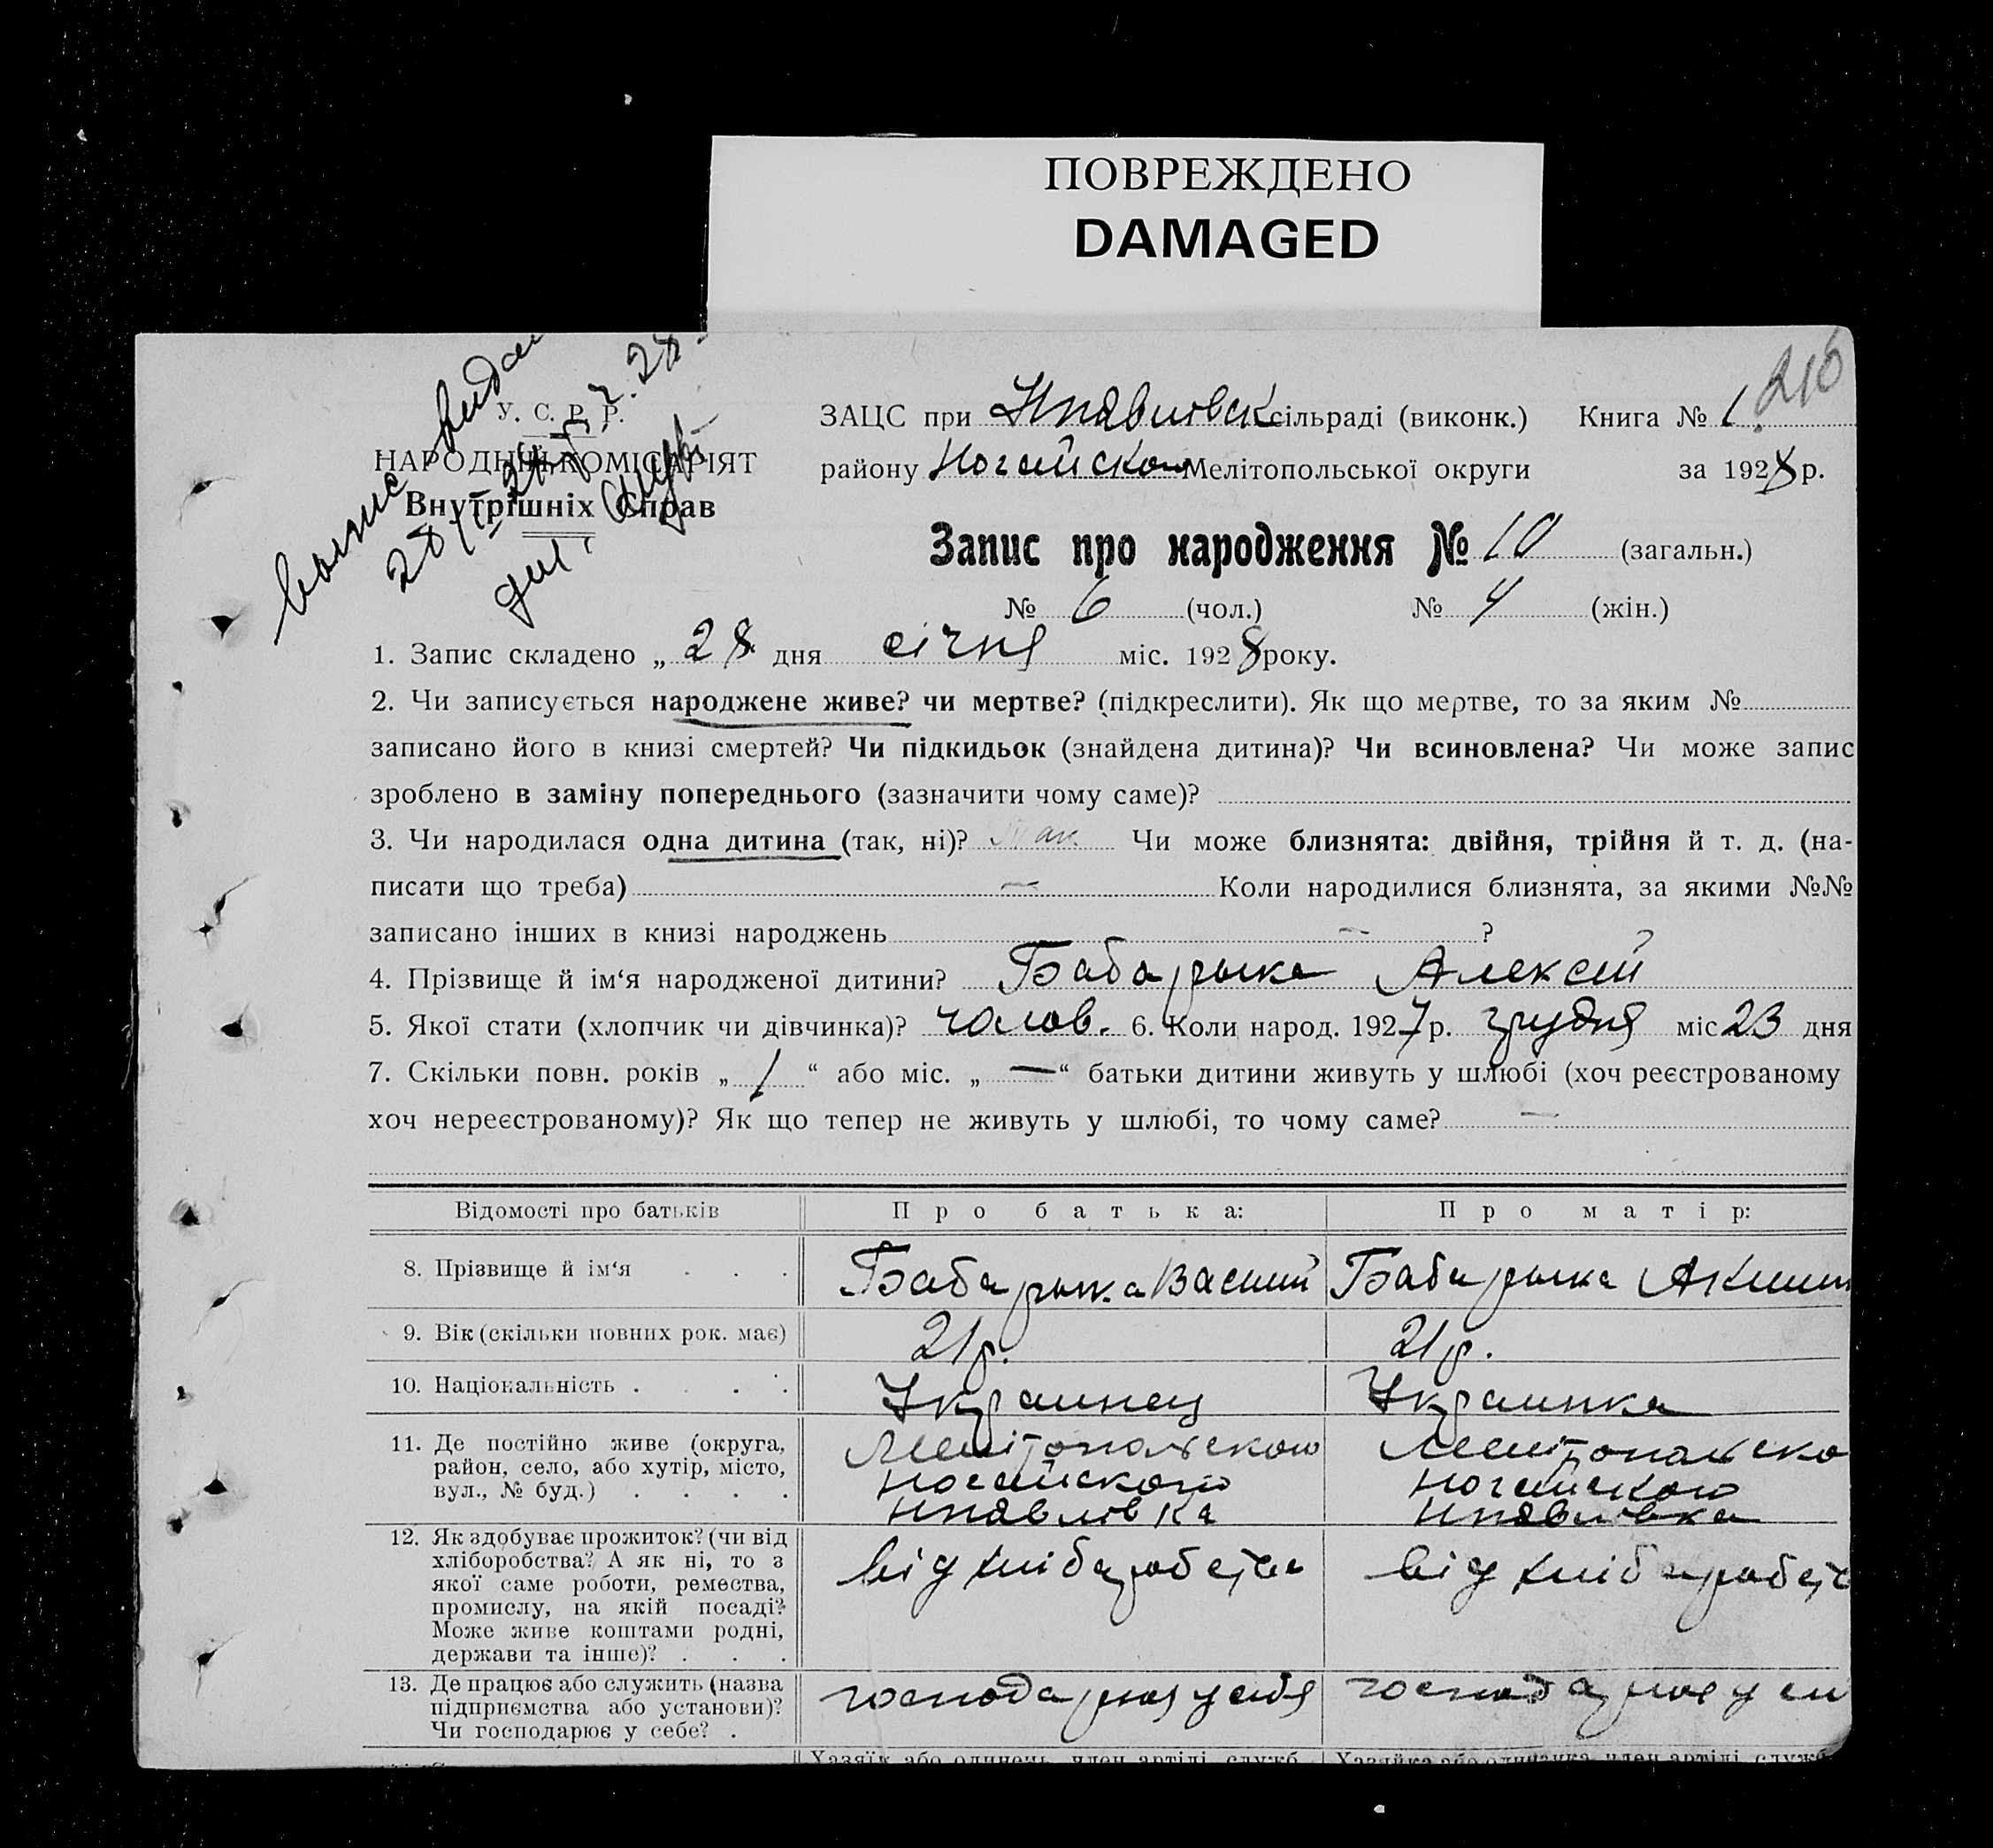 ПОВРЕЖДЕНО
DAMAGED
210
У. С. Р. Р.
НАРОДНІЙ КОМІСАРІЯТ
Внутрішніх Справ
ЗАЦС при Нпавлівск сільраді (виконк.) Книга № 1.
району Ногайскою Мелітопольської округи за 1928 р.
Запис про народження № 10 (загальн.)
№ 6 (чол.) № 4 (жін.)
1. Запис складено „ 28 дня січня міс. 1928 року.
2. Чи записується народжене живе? чи мертве? (підкреслити). Як що мертве, то за яким №
записано його в книзі смертей? Чи підкидьок (знайдена дитина)? Чи всиновлена? Чи може запис
зроблено в заміну попереднього (зазначити чому саме)?
3. Чи народилася одна дитина (так, ні)? так Чи може близнята: двійня, трійня й т. д. (на-
писати що треба) — Коли народилися близнята, за якими №№
записано інших в книзі народжень — ?
4. Прізвище й ім‘я народженої дитини? Бабарыка Алексей
5. Якої стати (хлопчик чи дівчинка)? чолов. 6. Коли народ. 1927 р. грудня міс 23 дня
7. Скільки повн. років „ 1 “ або міс. „ — “ батьки дитини живуть у шлюбі (хоч реєстрованому
хоч нереєстрованому)? Як що тепер не живуть у шлюбі, то чому саме? —
Відомості про батьків Про батька: Про матір:
8. Прізвище й ім‘я . . . Бабарыка Василий Бабарыка
9. Вік (скільки повних рок. має) 21 р. 21 р.
10. Національність . . . . Украинец Украинка
11. Де постійно живе (округа,
район, село, або хутір, місто,
вул., № буд.) . . . .
Мелітопольскою Мелітопольско
Ногайскою Ногайскою
Нпавлівка Нпавлівка
12. Як здобуває прожиток? (чи від
хліборобства? А як ні, то з
якої саме роботи, ремества,
промислу, на якій посаді?
Може живе коштами родні,
держави та інше)? . . .
від хлібаробства від хлібаробств
13. Де працює або служить (назва
підприємства або установи)?
Чи господарює у себе? .
господарює у себя господарює у
Хазяїн або одинець, член артілі, служб. Хазяйка або одиначка, член артілі, служб.